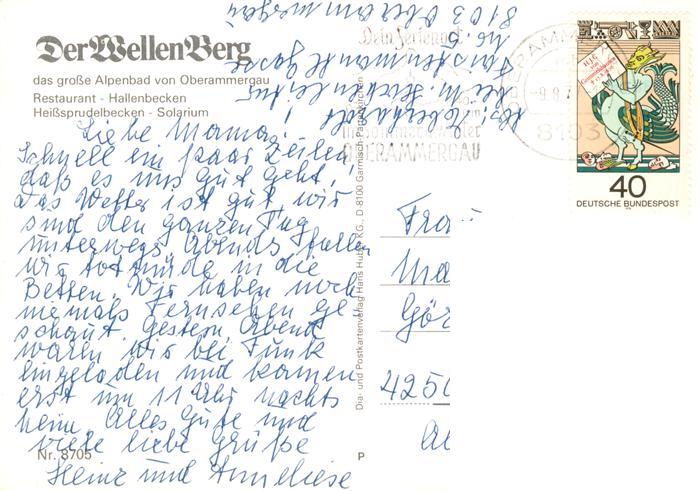 Der WellenBerg
das große Alpenbad von Oberammergau
Restaurant - Hallenbecken
Heißsprudelbecken - Solarium
Liebe Mama!
Schnell ein paar Zeilen,
daß es uns gut geht.
Das Wetter ist gut, wir
sind den ganzen Tag
unterwegs. Abends fallen
wir totmüde in die
Betten. Wir haben noch
niemals Fernsehen ge-
schaut. Gestern Abend
waren wir bei Funk
eingeladen und kamen
erst um 11 Uhr nachts
heim. Alles Gute und
viele liebe Grüße
Heinz und Anneliese
Nr. 8705
P
8103 Oberammergau
Dia- und Postkartenverlag Hans Huber KG., D-8100 Garmisch-Partenkirchen
Dein Ferienort
OBERAMMERGAU
-9.8.7
8103
40
DEUTSCHE BUNDESPOST
Fra
Ma
Gör
4250